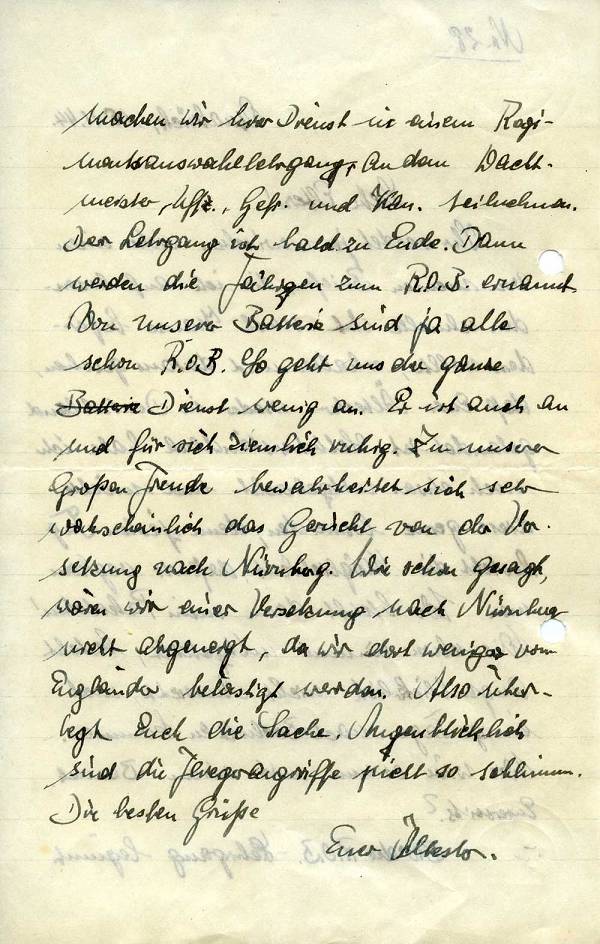 machen wir hier Dienst in einem Regi-
mentsauswahllehrgang, an dem Wacht-
meister, Uffz., Gefr. und Kan. teilnehmen.
Der Lehrgang ist bald zu Ende. Dann
werden die Fähigen zum R.O.B. ernannt.
Von unserer Batterie sind ja alle
schon R.O.B. So geht uns der ganze
Batterie Dienst wenig an. Er ist auch an
und für sich ziemlich ruhig. Zu unserer
Großen Freude bewahrheitet sich sehr
wahrscheinlich das Gerücht von der Ver-
setzung nach Nürnberg. Wie schon gesagt,
wären wir einer Versetzung nach Nürnberg
nicht abgeneigt, da wir dort weniger vom
Engländer belästigt werden. Also über-
legt Euch die Sache. Augenblicklich
sind die Fliegerangriffe nicht so schlimm.
Die besten Grüße
Euer Ältester.